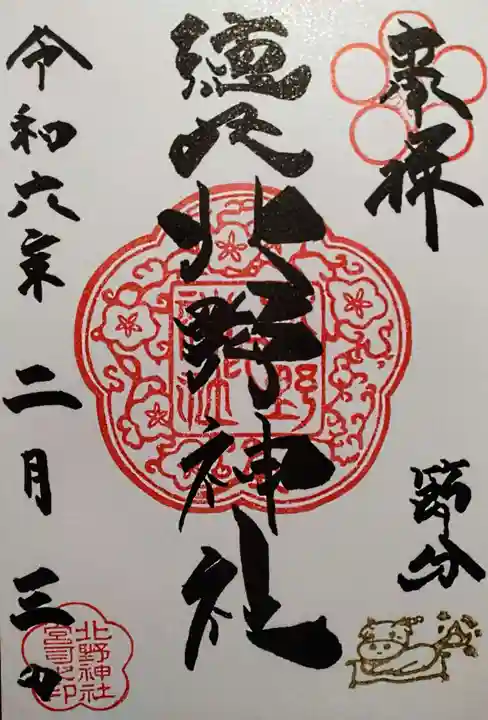 奉拝
節分
徳丸北野神社
令和六年二月三日
北野神社
宮司之印